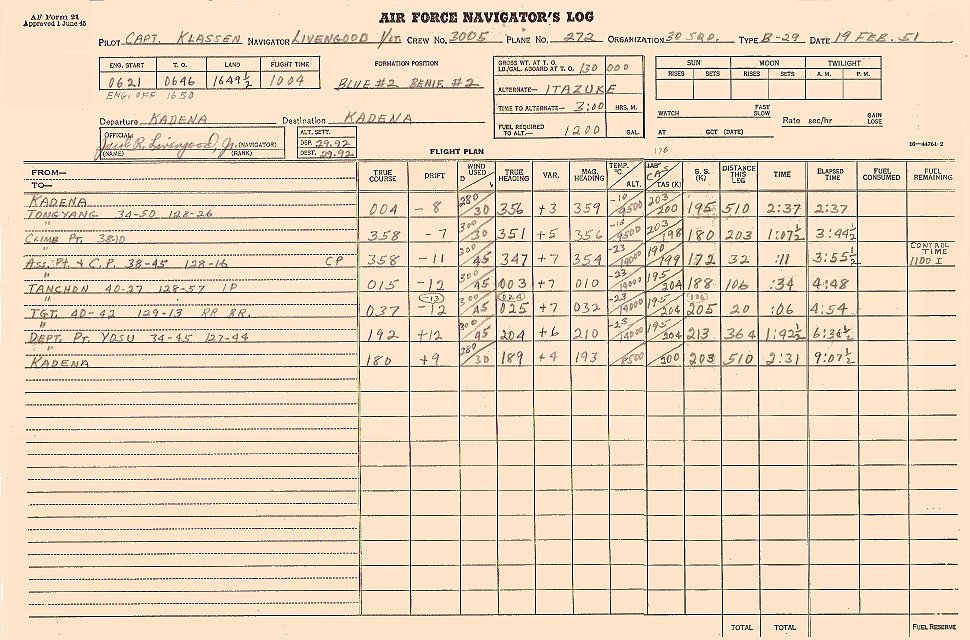 AF Form 21
Approved 1 June 45
AIR FORCE NAVIGATOR'S LOG
PILOT CAPT. KLASSEN NAVIGATOR LIVENGOOD 1/LT. CREW NO. 3005 PLANE NO. 272 ORGANIZATION 30 SQD. TYPE B-29 DATE 19 FEB. 51
ENG. START T. O. LAND FLIGHT TIME
0621 0646 1649½ 1004
ENG. OFF 1650
FORMATION POSITION
BLUE #2
GROSS WT. AT T. O.
LB./GAL. ABOARD AT T. O. 130 000
ALTERNATE— ITAZUKE
TIME TO ALTERNATE— 3:00 HRS. M.
FUEL REQUIRED
TO ALT.— 1200 GAL.
SUN MOON TWILIGHT
RISES SETS RISES SETS A. M. P. M.
WATCH FAST
SLOW Rate sec/hr GAIN
LOSE
AT GCT (DATE)
Departure KADENA Destination KADENA
OFFICIAL:
Paul R. Livengood, Jr. (NAVIGATOR)
(NAME) (RANK)
ALT. SETT.
DEP. 29.92
DEST. 29.92
FLIGHT PLAN
176
16—44761-2
FROM—
TO—
TRUE COURSE DRIFT WIND USED D V TRUE HEADING VAR. MAG. HEADING TEMP. °C ALT. CAS TAS (K) G. S. (K) DISTANCE THIS LEG TIME ELAPSED TIME FUEL CONSUMED FUEL REMAINING
KADENA
TONGYANG 34-50 128-26 004 -8 280/30 356 +3 359 -10/9500 203/200 195 510 2:37 2:37
"
CLIMB PT. 38-10 358 -7 300/30 351 +5 356 -15/9500 203/198 180 203 1:07½ 3:44½
"
ASS. PT. & C.P. 38-45 128-16 CP 358 -11 300/45 347 +7 354 -23/14000 190/199 172 32 :11 3:55½ CONTROL TIME 1100 I
"
TANCHON 40-27 128-57 IP 015 -12 300/45 003 +7 010 -23/14000 195/204 188 106 :34 4:48
"
TGT. 40-42 129-13 RR BR. 037 (-13) -12 300/45 (024) 025 +7 032 -23/14000 195/204 205 20 :06 4:54
"
DEPT. PT. YOSU 34-45 127-44 192 +12 300/45 204 +6 210 -23/14000 195/204 213 364 1:42½ 6:36½
"
KADENA 180 +9 280/30 189 +4 193 8500 200 203 510 2:31 9:07½
TOTAL TOTAL FUEL RESERVE